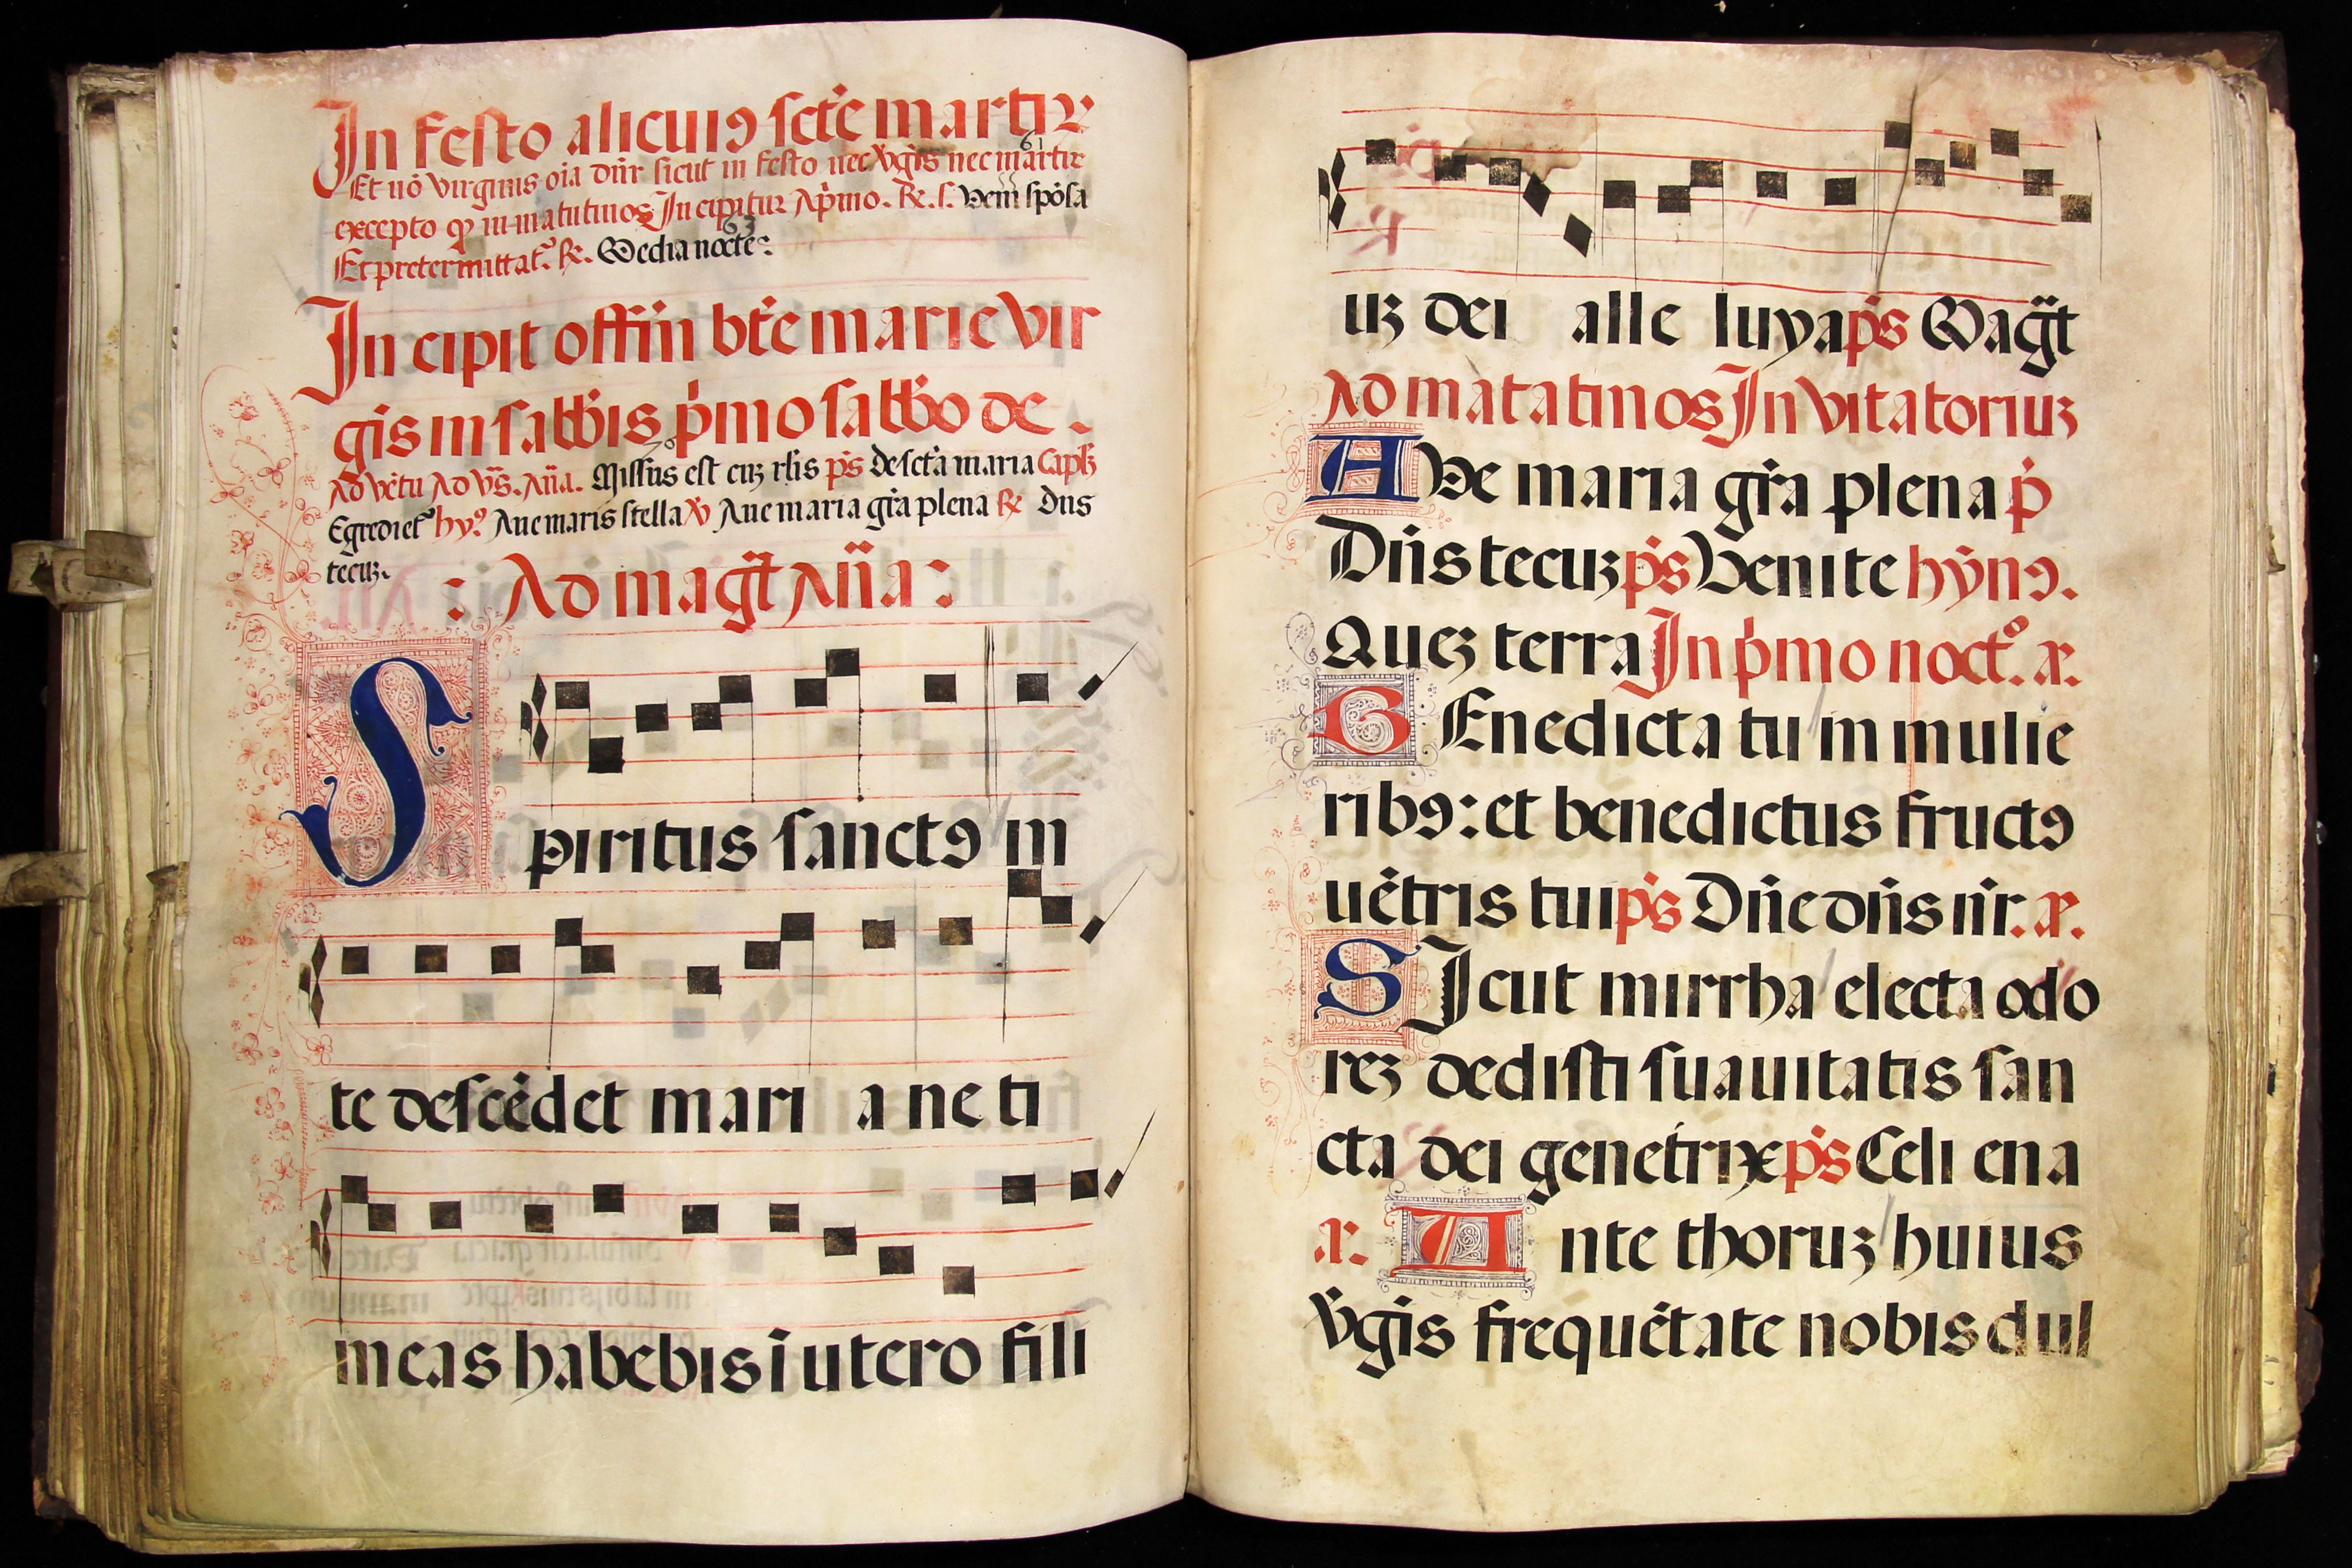 In festo alicuiꝯ scte martiꝝ
61
Et nō virginis oīa dn̄r sicut in festo nec v̇gīs nec martir
excepto ꝙ in matutinos Incipitur A pīmo. ℟. s. Veni spōsa
63
Et pretermittat᷑. ℟. Media nocte:
In cipit offīn btē marie vir
gīs in sabbīs p̄mo sabbō de
70
Ad vētū Ad vs̄. An̄a. Missus est cuꝫ rl̄is ps̄ de scta maria Capl̄ꝫ
Egrediet᷑ hyꝰ Aue maris stella ℣ Aue maria grā plena ℟ Dn̄s
tecuꝫ.
: Ad magt̄ an̄a :
Spiritus sanctꝯ in
te descēdet mari a ne ti
meas habebis ī utero fili
uꝫ dei alle luya ps̄ Magt̄
Ad matatinos Invitatoriuꝫ
AVe maria grā plena p̄
Dn̄s tecuꝫ ps̄ Venite hȳnꝯ.
Queꝫ terra In p̄mo noct.º a.
BEnedicta tu in mulie
ribꝯ: et benedictus fructꝯ
uētris tui ps̄ Dn̄e dn̄s nr̄. a.
SIcut mirrha electa odo
reꝫ dedisti suauitatis san
cta dei genetrix ps̄ Celi ena
a. Ante thoruꝫ huius
v̄gīs frequētate nobis dul